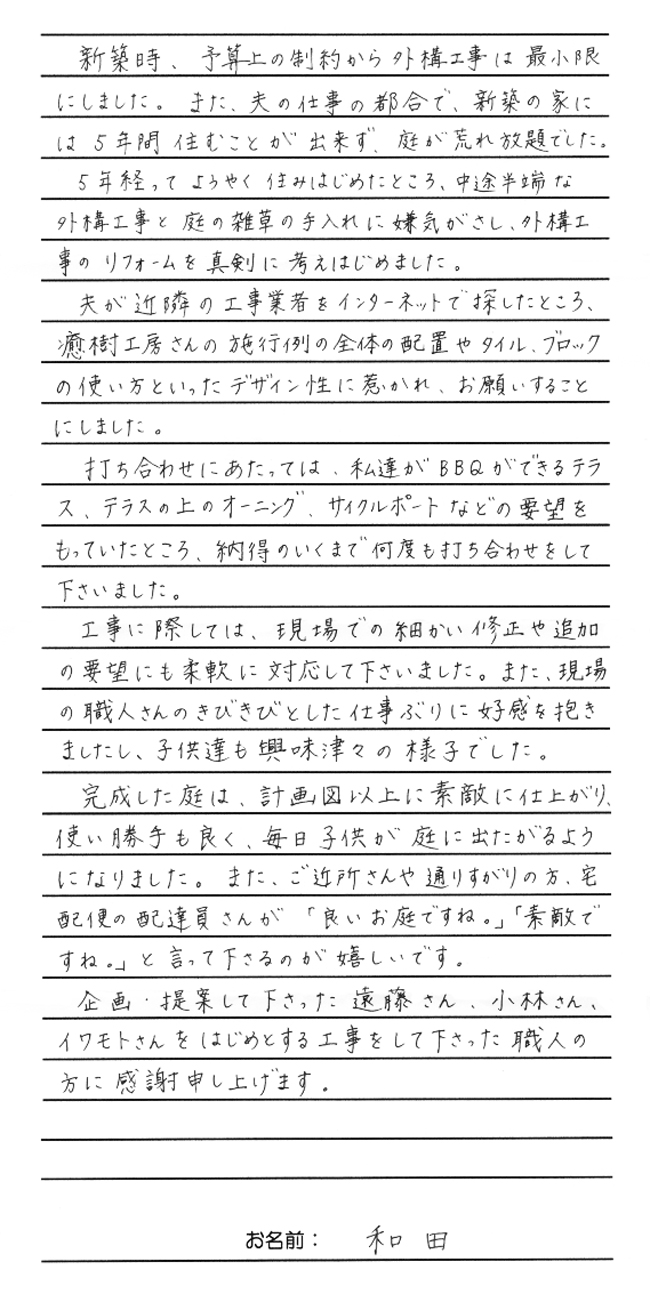 新築時、予算上の制約から外構工事は最小限
にしました。また、夫の仕事の都合で、新築の家に
は5年間住むことが出来ず、庭が荒れ放題でした。
5年経ってようやく住みはじめたところ、中途半端な
外構工事と庭の雑草の手入れに嫌気がさし、外構工
事のリフォームを真剣に考えはじめました。
夫が近隣の工事業者をインターネットで探したところ、
癒樹工房さんの施行例の全体の配置やタイル、ブロック
の使い方といったデザイン性に惹かれ、お願いすること
にしました。
打ち合わせにあたっては、私達がBBQができるテラ
ス、テラスの上のオーニング、サイクルポートなどの要望を
もっていたところ、納得のいくまで何度も打ち合わせをして
下さいました。
工事に際しては、現場での細かい修正や追加
の要望にも柔軟に対応して下さいました。また、現場
の職人さんのきびきびとした仕事ぶりに好感を抱き
ましたし、子供達も興味津々の様子でした。
完成した庭は、計画図以上に素敵に仕上がり、
使い勝手も良く、毎日子供が庭に出たがるよう
になりました。また、ご近所さんや通りすがりの方、宅
配便の配達員さんが「良いお庭ですね。」「素敵で
すね。」と言って下さるのが嬉しいです。
企画・提案して下さった遠藤さん、小林さん、
イワモトさんをはじめとする工事をして下さった職人の
方に感謝申し上げます。
お名前： 和田